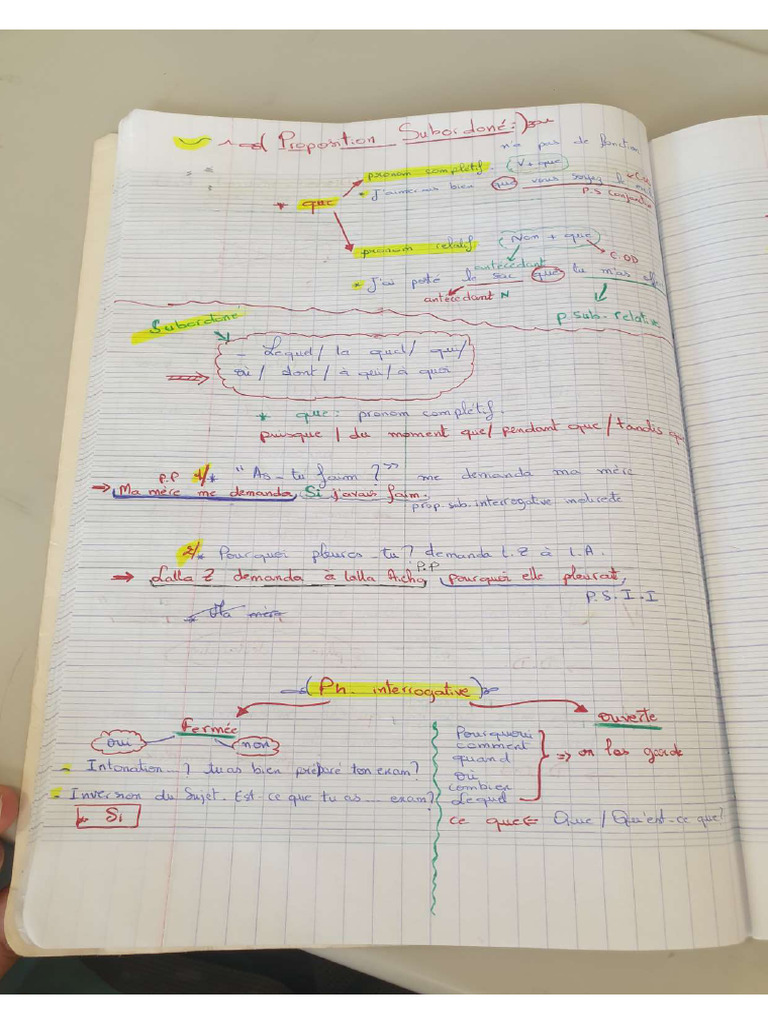 ( Proposition Subordoné : )
n'a pas de fonction
pronom complétif. ( V + que )
* J'aimerais bien que vous soyez le
* que
P.S Conjonctive
pronom relatif ( Nom + que )
C.OD
antécédant
* J'ai poté le sac que tu m'as
antécédant N
p. sub. relative
Subordoné
- Lequel / la quel / qui /
où / dont / à qui / à quoi
* que : pronom complétif.
puisque / du moment que / pendant que / tandis que
P.P 1/* "As-tu faim ?" me demanda ma mère
→ Ma mère me demanda Si j'avais faim.
prop. sub. interrogative indirecte
2/* Pourquoi pleures-tu ? demanda L.Z à L.A.
P.P
→ Lalla Z demanda à lalla Aicha pourquoi elle pleurait,
P.S.I.I
* Ma mère
( Ph. interrogative )
Fermée
ouverte
oui non
Pourquoi
comment
quand
où
combien
Lequel
⇒ on les garde
- Intonation... ? tu as bien préparé ton exam ?
- Inversion du Sujet. Est-ce que tu as ... exam ?
* Si
ce que ⇐ Que / Qu'est-ce que ?